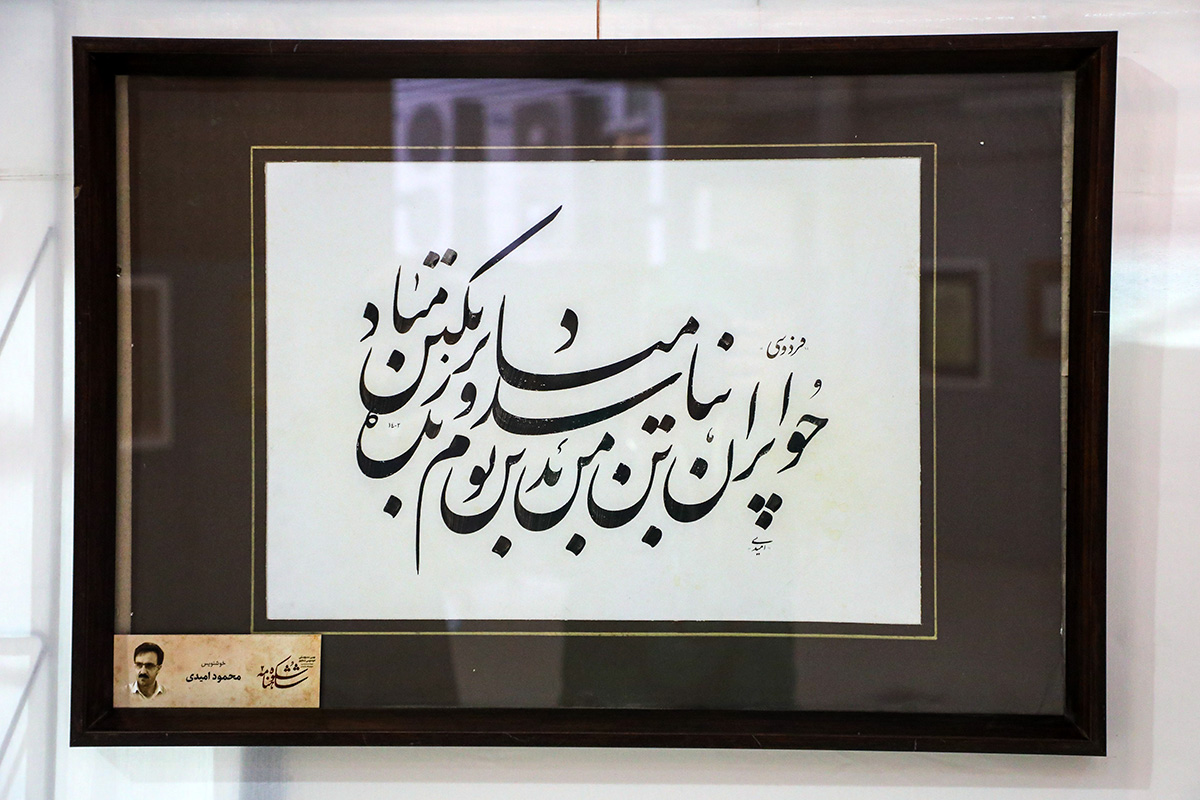 فردوسی
چو ایران نباشد تن من مباد
بدین بوم و بر زنده یک تن مباد
۱۴۰۲
امیدی
خوشنویس
محمود امیدی